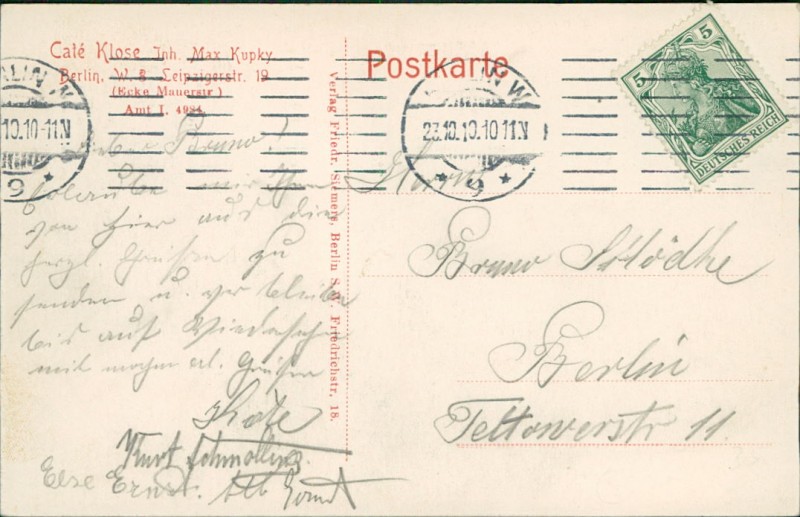 Café Klose Inh. Max Kupky
Berlin, W. 8 Leipzigerstr. 19
(Ecke Mauerstr)
Amt I. 4984
Postkarte
BERLIN W
23.10.10.10-11V
* 9 *
5
5
DEUTSCHES REICH
Verlag Friedr. Siemers, Berlin S.W. Friedrichstr. 18.
Lieber Bruno!
von hier aus die
herzl. Grüßen zu
senden u. verbleibe
bis auf Wiedersehn
mit Grüßen
Käte
Kurt Schmolling.
Else Ernst.
Herrn
Bruno Stödke
Berlin
Teltowerstr 11.